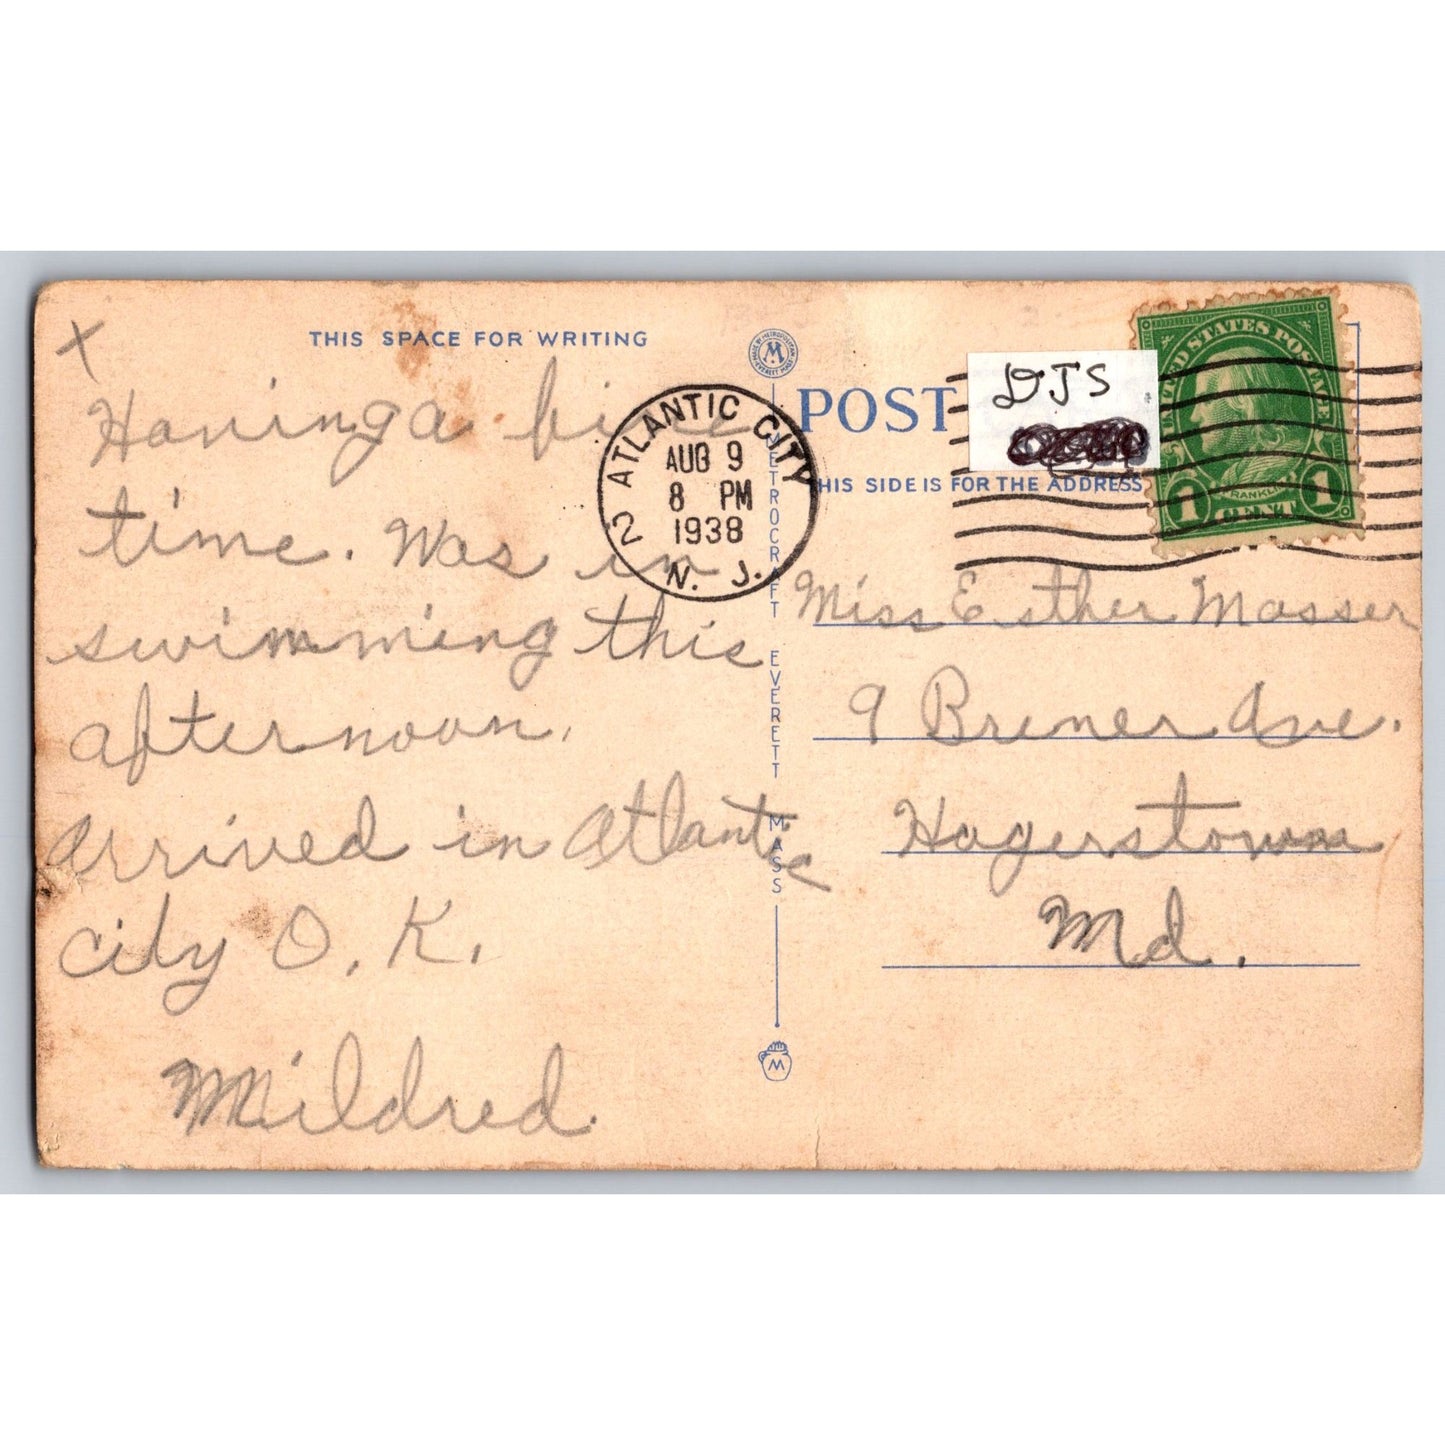 x
THIS SPACE FOR WRITING
Having a fine
time. Was in
swimming this
afternoon.
Arrived in Atlantic
City O.K.
Mildred.
MADE BY METROPOLITAN
M
EVERETT MASS
METROCRAFT EVERETT MASS
M
2 ATLANTIC CITY
AUG 9
8 PM
1938
N. J.
POST
DJS
THIS SIDE IS FOR THE ADDRESS
UNITED STATES POSTAGE
FRANKLIN
1 CENT 1
Miss Esther Mosser
9 Brener Ave.
Hagerstown
Md.